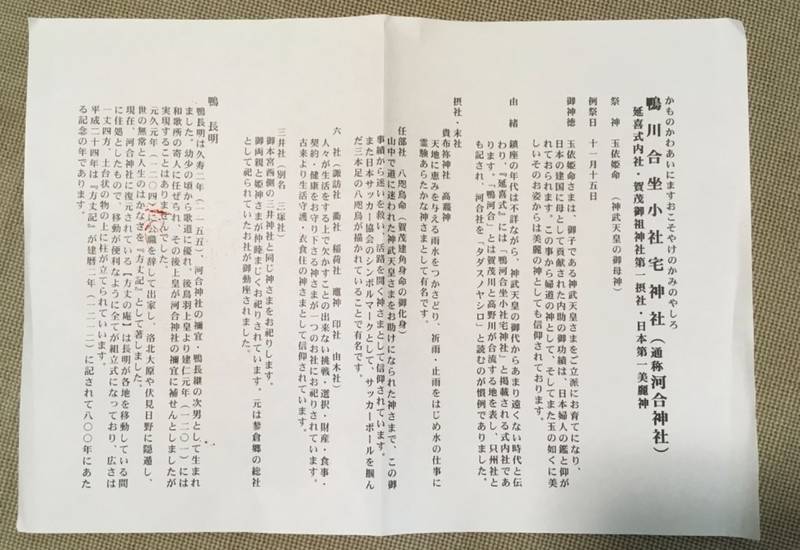 かものかわあいにますおこそやけのかみのやしろ
鴨川合坐小社宅神社（通称河合神社）
延喜式内社・賀茂御祖神社第一摂社・日本第一美麗神
祭神 玉依姫命 （神武天皇の御母神）
例祭日 十一月十五日
御神徳 玉依姫命さまは、御子である神武天皇さまをご立派にお育てになり、
日本の建国に母として貢献された内助の御功績は、日本婦人の鑑と仰が
れておられます。この事から婦道の神として、そしてまた玉の如くに美
しいそのお姿からは美麗の神としても信仰されております。
由緒 鎮座の年代は不詳ながら、神武天皇の御代からあまり遠くない時代と伝
わり、『延喜式』には「鴨川合坐小社宅神社」と掲載される式内社であ
ります。「鴨河合」とは賀茂川と高野川が合流する地を表し、只州社と
も記され、河合社を「タダスノヤシロ」と読むのが慣例でありました。
摂社・末社
貴布祢神社 高龗神
天地の恵みを与える雨水をつかさどり、祈雨・止雨をはじめ水の仕事に
霊験あらたかな神さまとして有名です。
任部社 八咫烏命（賀茂建角身命の御化身）
山中で道に迷われた神武天皇さまをお助けになられた神さまで、この御
事績から迷いを救い、活路を開く神さまとして信仰されています。
また日本サッカー協会のシンボルマークとして、サッカーボールを掴ん
だ三本足の八咫烏が描かれていることで有名です。
六社（諏訪社 衢社 稲荷社 竈神 印社 由木社）
人々が生活をする上で欠かすことの出来ない挑戦・選択・財産・食事・
契約・健康をお守り下さる神さまが一つのお社にお祀りされています。
古来より生活守護・衣食住の神さまとして信仰されています。
三井社（別名 三塚社）
御本宮西側の三井神社と同じ神さまをお祀りします。
御両親と姫神さまが仲睦まじくお祀りされています。元は蓼倉郷の総社
として祀られていたお社が御動座されました。
鴨 長明
鴨長明は久寿二年（一一五五）、河合神社の禰宜・鴨長継の次男として生まれ
ました。幼少の頃から歌道に優れ、後鳥羽上皇より建仁元年（一二〇一）には
和歌所の寄人に任ぜられ、その後上皇が河合神社の禰宜に補せんとしましたが
実現することはありませんでした。
元久元年（一二〇四）に公職を辞して出家し、洛北大原や伏見日野に隠遁し、
世の無常と人生のはかなさを『方丈記』として著しました。
現在、河合神社に復元されている「方丈の庵」は長明が各地を移動している間
に住処としたもので、移動が便利なように全てが組立式になっており、広さは
一丈四方、土台状の物の上に柱が立てられています。
平成二十四年は『方丈記』が建暦二年（一二一二）に記されて八〇〇年にあた
る記念の年であります。